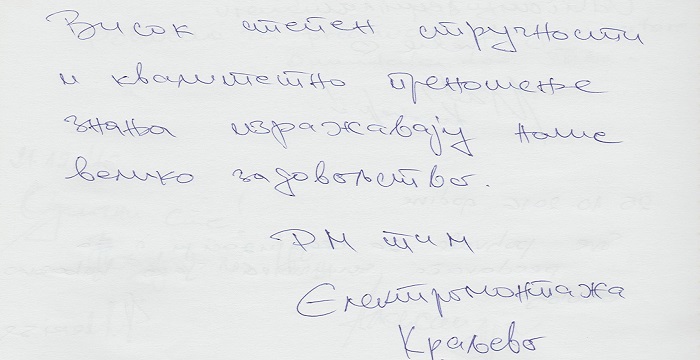 Висок степен стручности
и квалитетно преношење
знања изражавају наше
велико задовољство.
РМ тим
Електромонтажа
Краљево